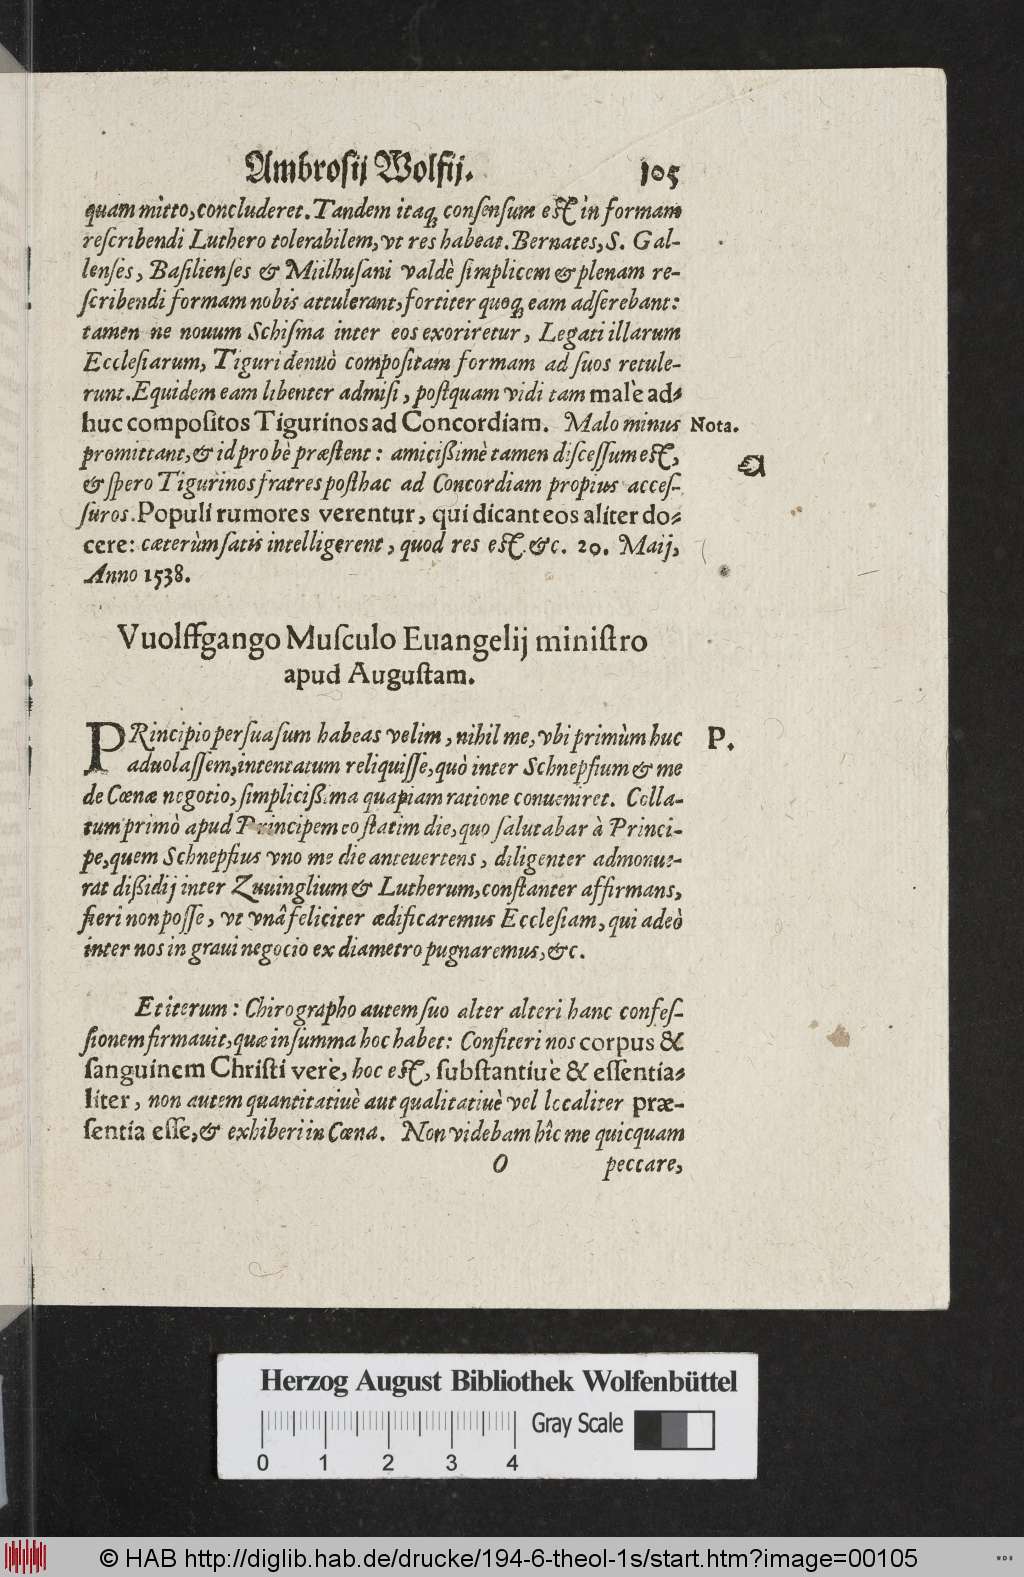 Ambrosij Wolfij. 105
quam mitto, concluderet. Tandem itaq; consensum est in formam
rescribendi Luthero tolerabilem, vt res habeat. Bernates, S. Gal-
lenses, Basilienses & Miilhusani valdè simplicem & plenam re-
scribendi formam nobis attulerant, fortiter quoq; eam adserebant:
tamen ne nouum Schisma inter eos exoriretur, Legati illarum
Ecclesiarum, Tiguri denuò compositam formam ad suos retule-
runt. Equidem eam libenter admisi, postquam vidi tam malè ad-
huc compositos Tigurinos ad Concordiam. Malo minus Nota.
promittant, & id probè præstent: amicißimè tamen discessum est,
& spero Tigurinos fratres posthac ad Concordiam propius acces-
suros. Populi rumores verentur, qui dicant eos aliter do-
cere: cæterùm satis intelligerent, quod res est. &c. 20. Maij,
Anno 1538.
Vuolffgango Musculo Euangelij ministro
apud Augustam.
PRincipio persuasum habeas velim, nihil me, vbi primùm huc P.
aduolassem, intentatum reliquisse, quò inter Schnepfium & me
de Cœnæ negotio, simplicißima quapiam ratione conueniret. Colla-
tum primò apud Principem eo statim die, quo salutabar à Princi-
pe, quem Schnepfius vno me die anteuertens, diligenter admonue-
rat dißidij inter Zuuinglium & Lutherum, constanter affirmans,
fieri non posse, vt vnâ feliciter ædificaremus Ecclesiam, qui adeò
inter nos in graui negocio ex diametro pugnaremus, &c.
Et iterum: Chirographo autem suo alter alteri hanc confes-
sionem firmauit, quæ in summa hoc habet: Confiteri nos corpus &
sanguinem Christi verè, hoc est, substantiuè & essentia-
liter, non autem quantitatiuè aut qualitatiuè vel localiter præ-
sentia esse, & exhiberi in Cœna. Non videbam hîc me quicquam
O peccare,
Herzog August Bibliothek Wolfenbüttel
Gray Scale
0 1 2 3 4
© HAB http://diglib.hab.de/drucke/194-6-theol-1s/start.htm?image=00105